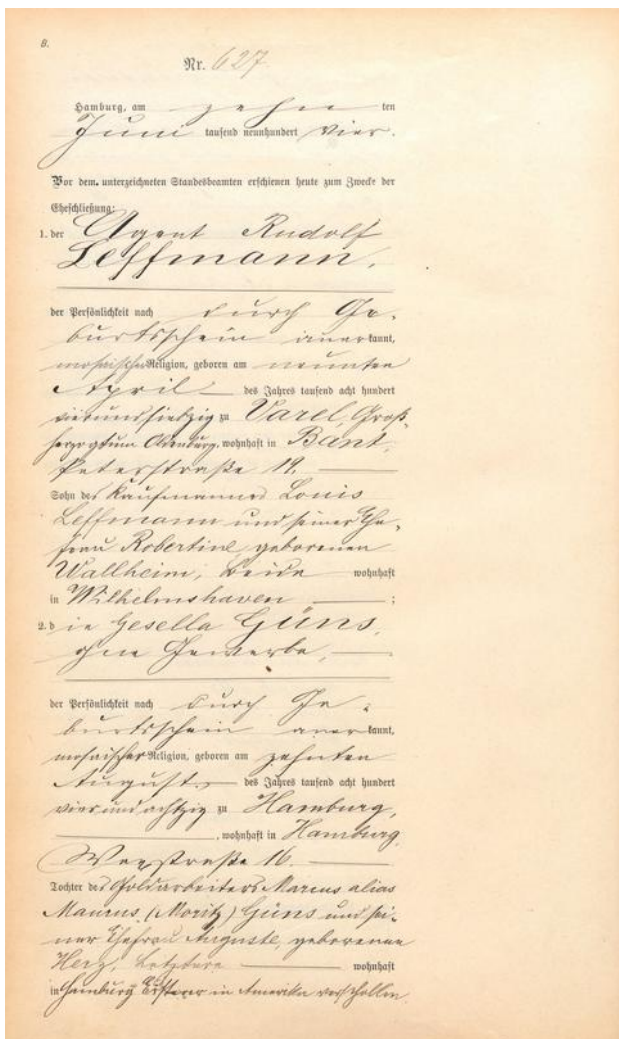 B.
Nr. 627
Hamburg, am zehn ten
Juni tausend neunhundert vier.
Vor dem unterzeichneten Standesbeamten erschienen heute zum Zwecke der
Eheschließung:
1. der Agent Rudolf
Leffmann,
der Persönlichkeit nach durch Ge-
burtsschein anerkannt,
mosaischer Religion, geboren am neunten
April des Jahres tausend acht hundert
vierundsiebzig zu Varel, Groß-
herzogtum Oldenburg, wohnhaft in Bant,
Peterstraße 19.
Sohn des Kaufmannes Louis
Leffmann und seiner Ehe-
frau Robertine, geborenen
Wallheim, beide wohnhaft
in Wilhelmshaven ;
2. die Gesella Güns,
ohne Gewerbe,
der Persönlichkeit nach durch Ge-
burtsschein anerkannt,
mosaischer Religion, geboren am zehnten
August des Jahres tausend acht hundert
vierundachtzig zu Hamburg,
, wohnhaft in Hamburg,
16.
Tochter des Goldarbeiters Marcus alias
Maurus (Moritz) Güns und sei-
ner Ehefrau Auguste, geborenen
Herz, Letztere wohnhaft
in Hamburg Ersterer in Amerika verschollen.